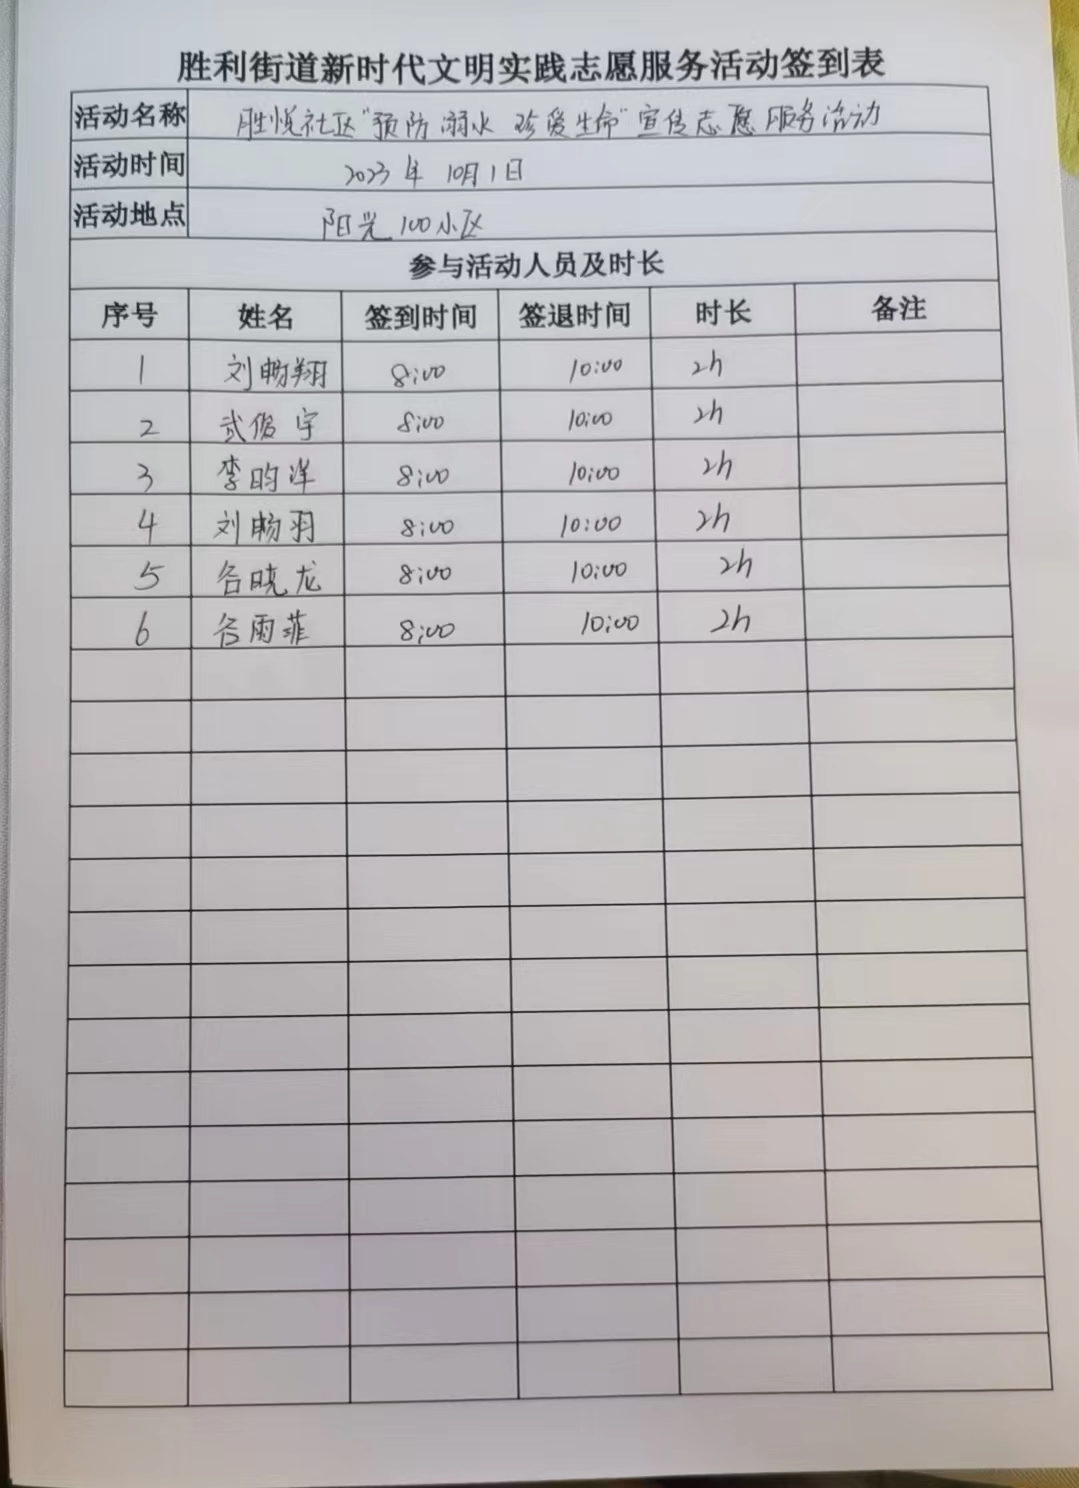 胜利街道新时代文明实践志愿服务活动签到表
活动名称 胜悦社区"预防溺水 珍爱生命"宣传志愿服务活动
活动时间 2023年10月1日
活动地点 阳光100小区
参与活动人员及时长
序号 姓名 签到时间 签退时间 时长 备注
1 刘畅翔 8:00 10:00 2h
2 武俊宇 8:00 10:00 2h
3 李昀洋 8:00 10:00 2h
4 刘畅羽 8:00 10:00 2h
5 谷晓龙 8:00 10:00 2h
6 谷雨菲 8:00 10:00 2h